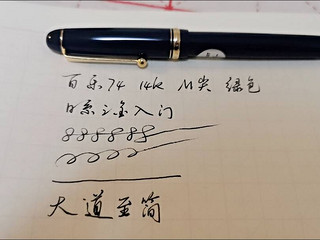 百乐74 14K M尖 绿色
日系三金入门
888888
大道至简